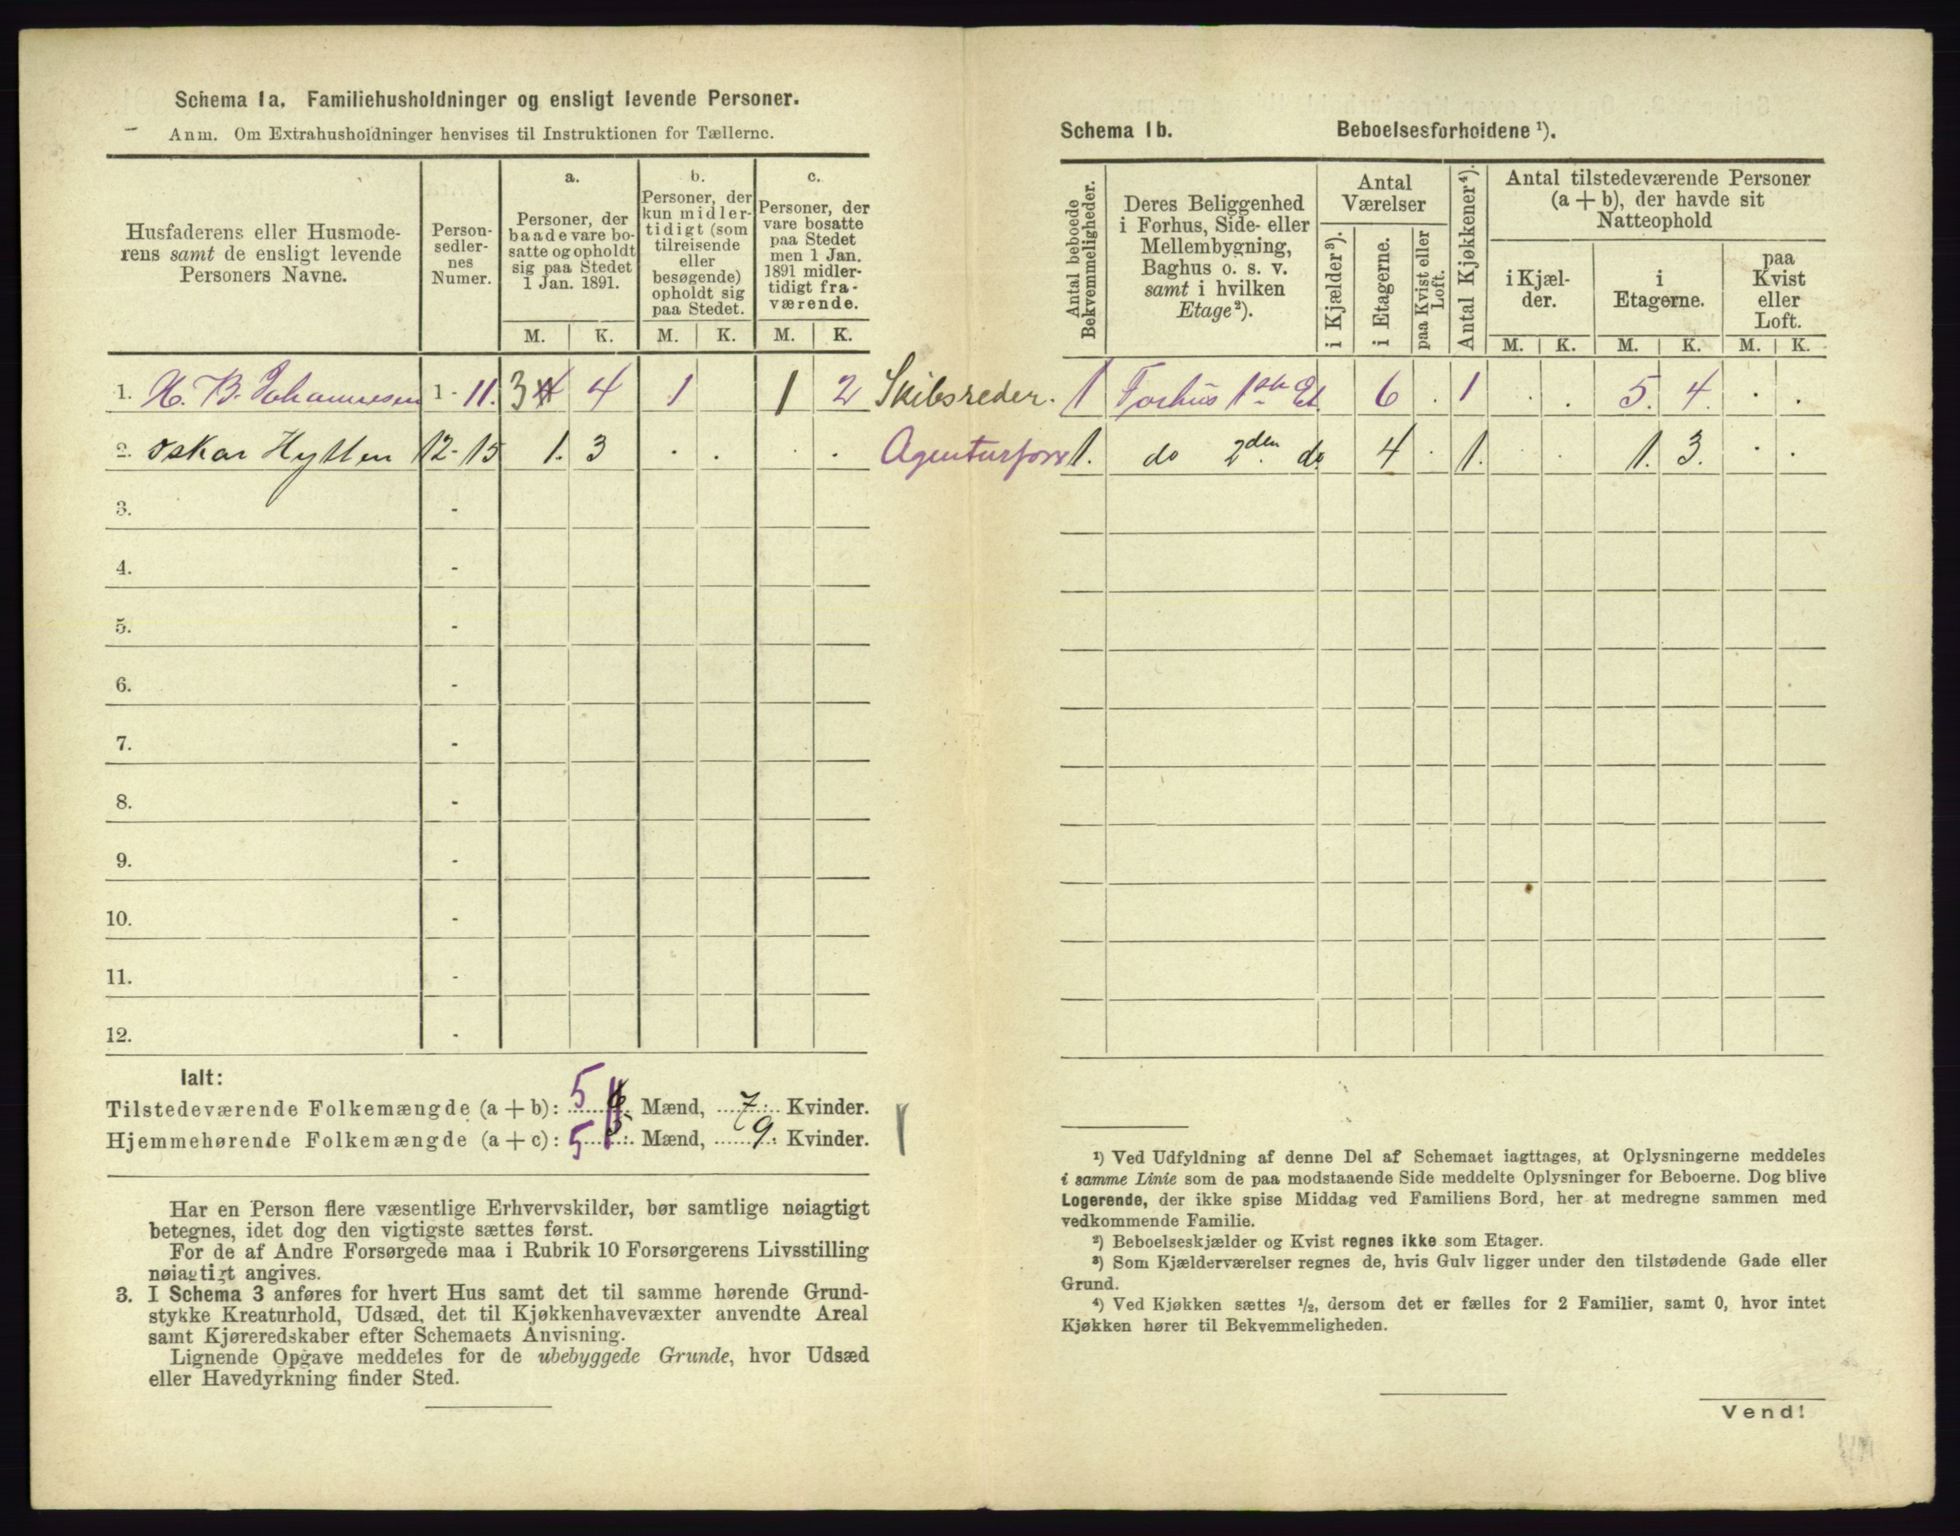 Schema 1a. Familiehusholdninger og ensligt levende Personer.
Anm. Om Extrahusholdninger henvises til Instruktionen for Tællerne.
Husfaderens eller Husmoderens samt de ensligt levende Personers Navne.
Person-sedler-nes Numer.
a. Personer, der baade vare bosatte og opholdt sig paa Stedet 1 Jan. 1891.
b. Personer, der kun midlertidigt (som tilreisende eller besøgende) opholdt sig paa Stedet.
c. Personer, der vare bosatte paa Stedet men 1 Jan. 1891 midlertidigt fraværende.
M. K. M. K. M. K.
1. H. B. Johannesen 1 - 11. 3 4 4 1 1 2 Skibsreder.
2. Oskar Hytten 12 - 15 1. 3 . . . . Agenturforr
3. -
4. -
5. -
6. -
7. -
8. -
9. -
10. -
11. -
12. -
Ialt:
Tilstedeværende Folkemængde (a + b): 5 6 Mænd, 7 Kvinder.
Hjemmehørende Folkemængde (a + c): 5 5 Mænd, 9 Kvinder.
Har en Person flere væsentlige Erhvervskilder, bør samtlige nøiagtigt
betegnes, idet dog den vigtigste sættes først.
For de af Andre Forsørgede maa i Rubrik 10 Forsørgerens Livsstilling
nøiagtigt angives.
3. I Schema 3 anføres for hvert Hus samt det til samme hørende Grund-
stykke Kreaturhold, Udsæd, det til Kjøkkenhavevæxter anvendte Areal
samt Kjøreredskaber efter Schemaets Anvisning.
Lignende Opgave meddeles for de ubebyggede Grunde, hvor Udsæd
eller Havedyrkning finder Sted.
Schema 1b. Beboelsesforholdene ¹).
Antal beboede Bekvemmeligheder.
Deres Beliggenhed i Forhus, Side- eller Mellembygning, Baghus o. s. v. samt i hvilken Etage²).
Antal Værelser
i Kjælder³).
i Etagerne.
paa Kvist eller Loft.
Antal Kjøkkener⁴).
Antal tilstedeværende Personer (a + b), der havde sit Natteophold
i Kjælder.
i Etagerne.
paa Kvist eller Loft.
M. K. M. K. M. K.
1 Forhus 1ste Et 6 . 1 . . 5. 4. . .
1. do 2den do 4 . 1. . . 1. 3. . .
¹) Ved Udfyldning af denne Del af Schemaet iagttages, at Oplysningerne meddeles
i samme Linie som de paa modstaaende Side meddelte Oplysninger for Beboerne. Dog blive
Logerende, der ikke spise Middag ved Familiens Bord, her at medregne sammen med
vedkommende Familie.
²) Beboelseskjælder og Kvist regnes ikke som Etager.
³) Som Kjælderværelser regnes de, hvis Gulv ligger under den tilstødende Gade eller
Grund.
⁴) Ved Kjøkken sættes ½, dersom det er fælles for 2 Familier, samt 0, hvor intet
Kjøkken hører til Bekvemmeligheden.
Vend!